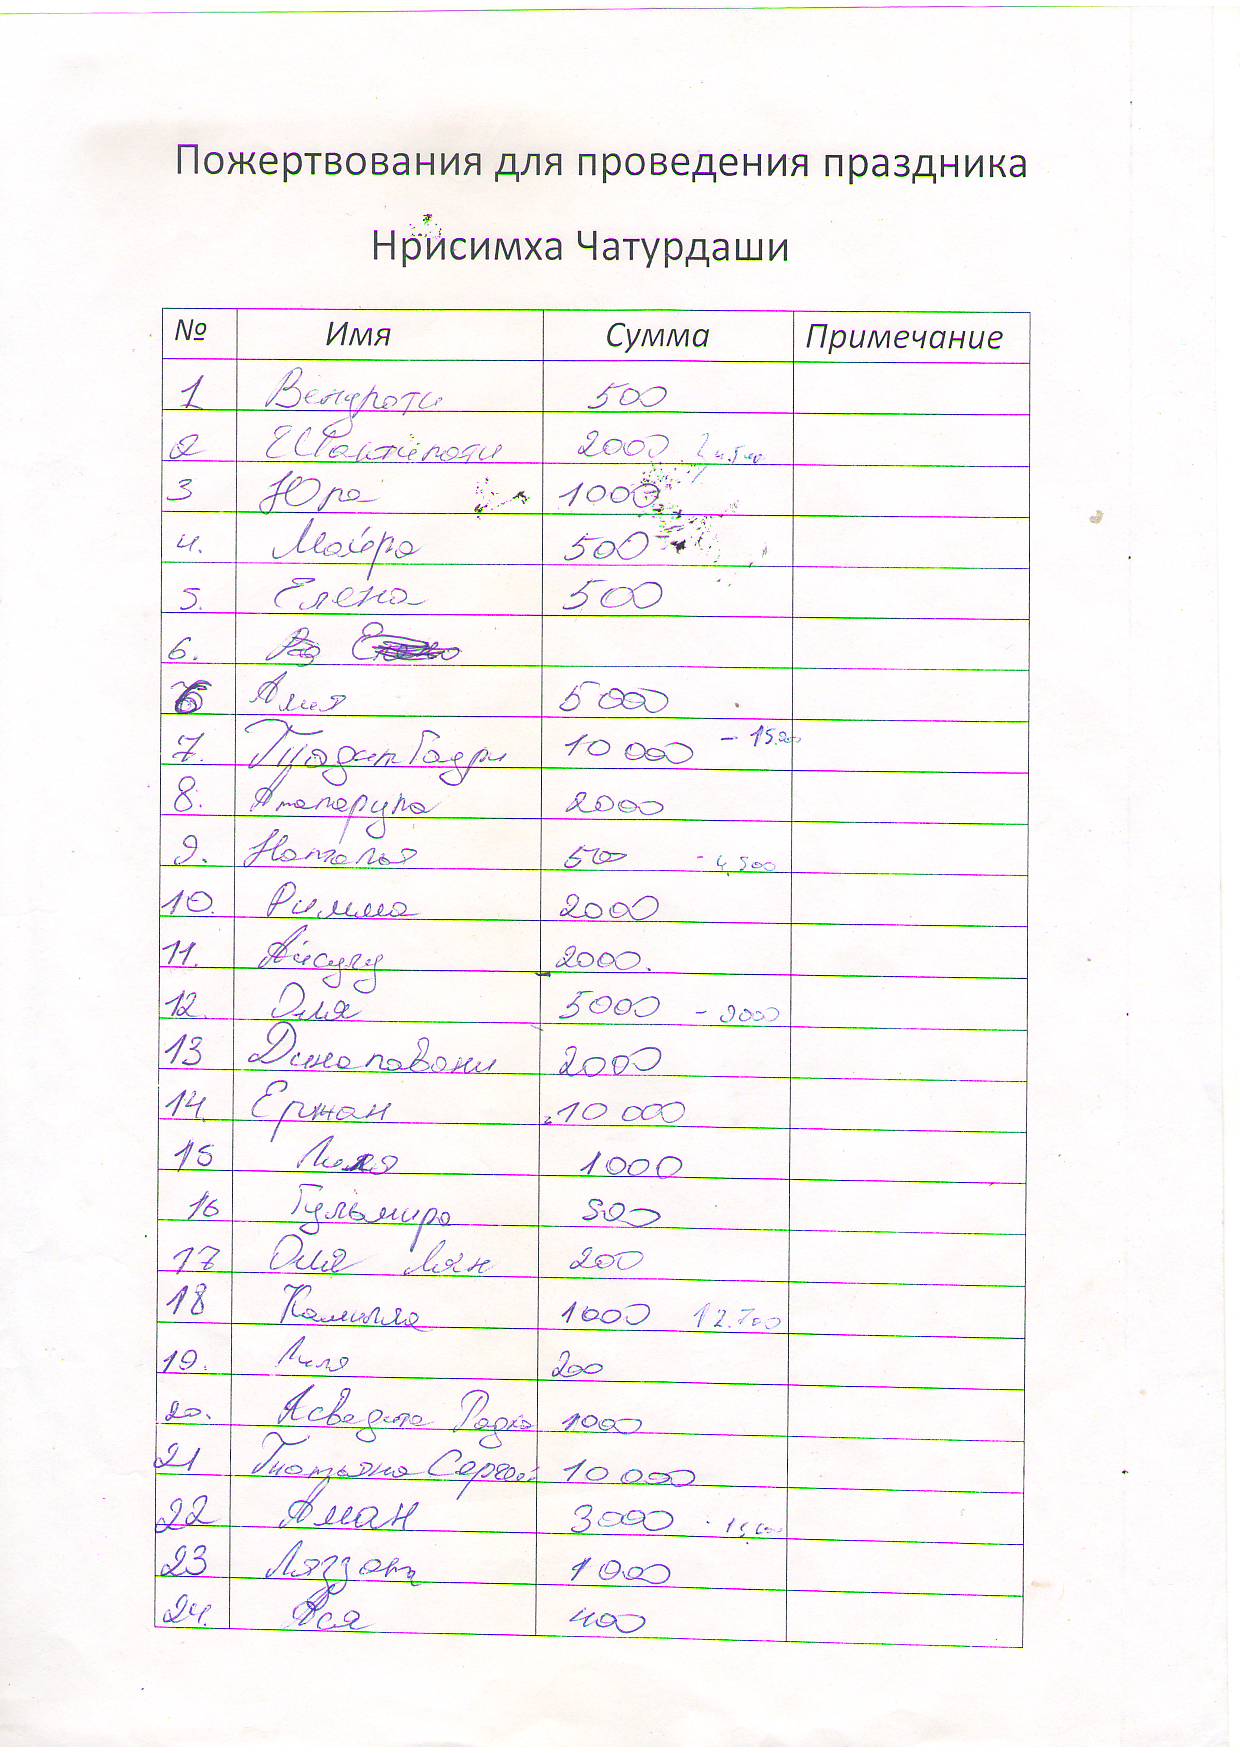 Пожертвования для проведения праздника
Нрисимха Чатурдаши
№ Имя Сумма Примечание
1 500
2 2000
3 Юра 1000
4. Майра 500
5. Елена 500
6.
6 Алия 5000
7. Гаури 10 000 - 15.000
8. 2000
9. Наталья 500 - 4 500
10. Римма 2000
11. Айсулу 2000.
12. Оля 5000 - 9000
13 Динапавани 2000
14. Ержан 10 000
15 Лиля 1000
16 Гульмира 500
17 Оля Лян 200
18 Камилла 1000 12.700
19. Лиля 200
20. Радха 1000
21 Татьяна Сергей 10 000
22 Аман 3000
23 Ляззат 1000
24. Ася 400